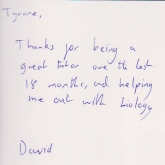 Tyrone,
Thanks for being a
great tutor over the last
18 months, and helping
me out with biology
David